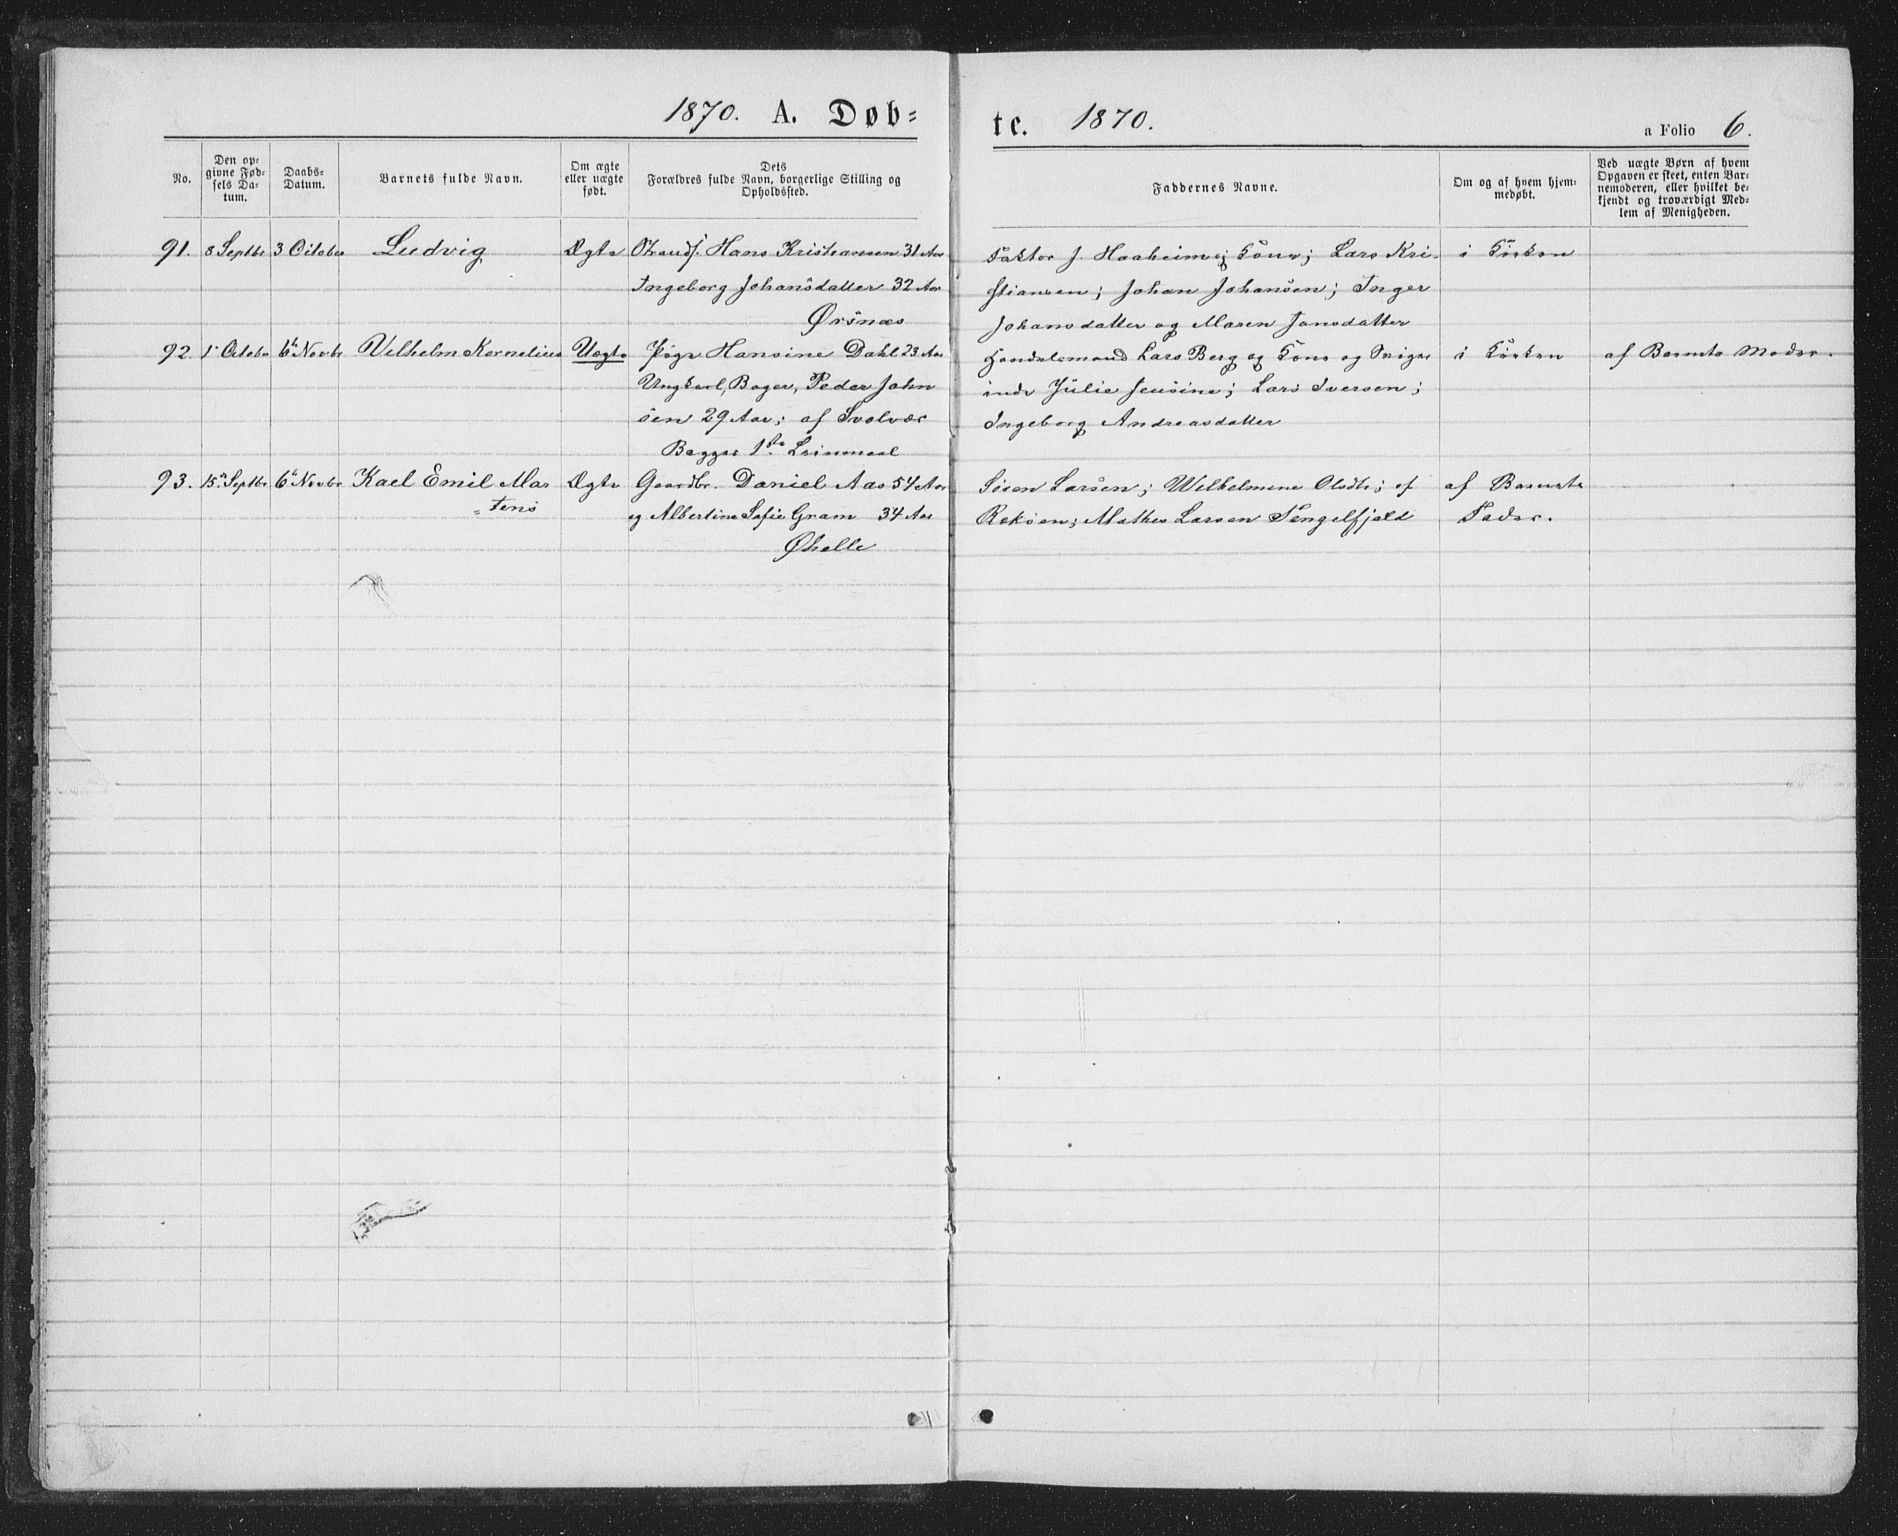 1870. A. Døb=
te. 1870. a Folio 6.
No.
Den op=
givne Fød=
sels Da=
tum.
Daabs=
Datum.
Barnets fulde Navn.
Om ægte
eller uægte
født.
Dets
Forældres fulde Navn, borgerlige Stilling og
Opholdssted.
Faddernes Navne.
Om og af hvem hjem=
medøbt.
Ved uægte Børn af hvem
Opgaven er skeet, enten Bar=
nemoderen, eller hvilket be=
kjendt og troværdigt Med=
lem af Menigheden.
91. 8 Septbr 3 October Ludvig Ægte Strands. Hans Kristiansen 31 Aar
Ingeborg Johansdatter 32 Aar
Ørsnæs
Faktor J. Haaheim og Kone; Lars Kri-
stiansen; Johan Johansen; Inger
Johansdatter og Maren Jonsdatter
i Kirken
92. 1 Octobr 6te Novbr Vilhelm Kornelius Uægte Pige Hansine Dahl 23 Aar
Ungkarl, Bager, Peder John
sen 29 Aar; af Svolvær
Begges 1ste Leiermaal
Handelsmand Lars Berg og Kone og
Julie Jensine; Lars Iversen;
Ingeborg Andreasdatter
i Kirken
af Barnets Moder.
93. 15 Septbr 6te Novbr Karl Emil Mar
=tens
Ægte Gaardbr. Daniel Aas 54 Aar
og Albertine Sofie Gram 34 Aar
Øhelle
Søren Larsen; Wilhelmine Olsdtr; af
Rekøen; Mathis Larsen Tengelfjord
af Barnets
Fader.